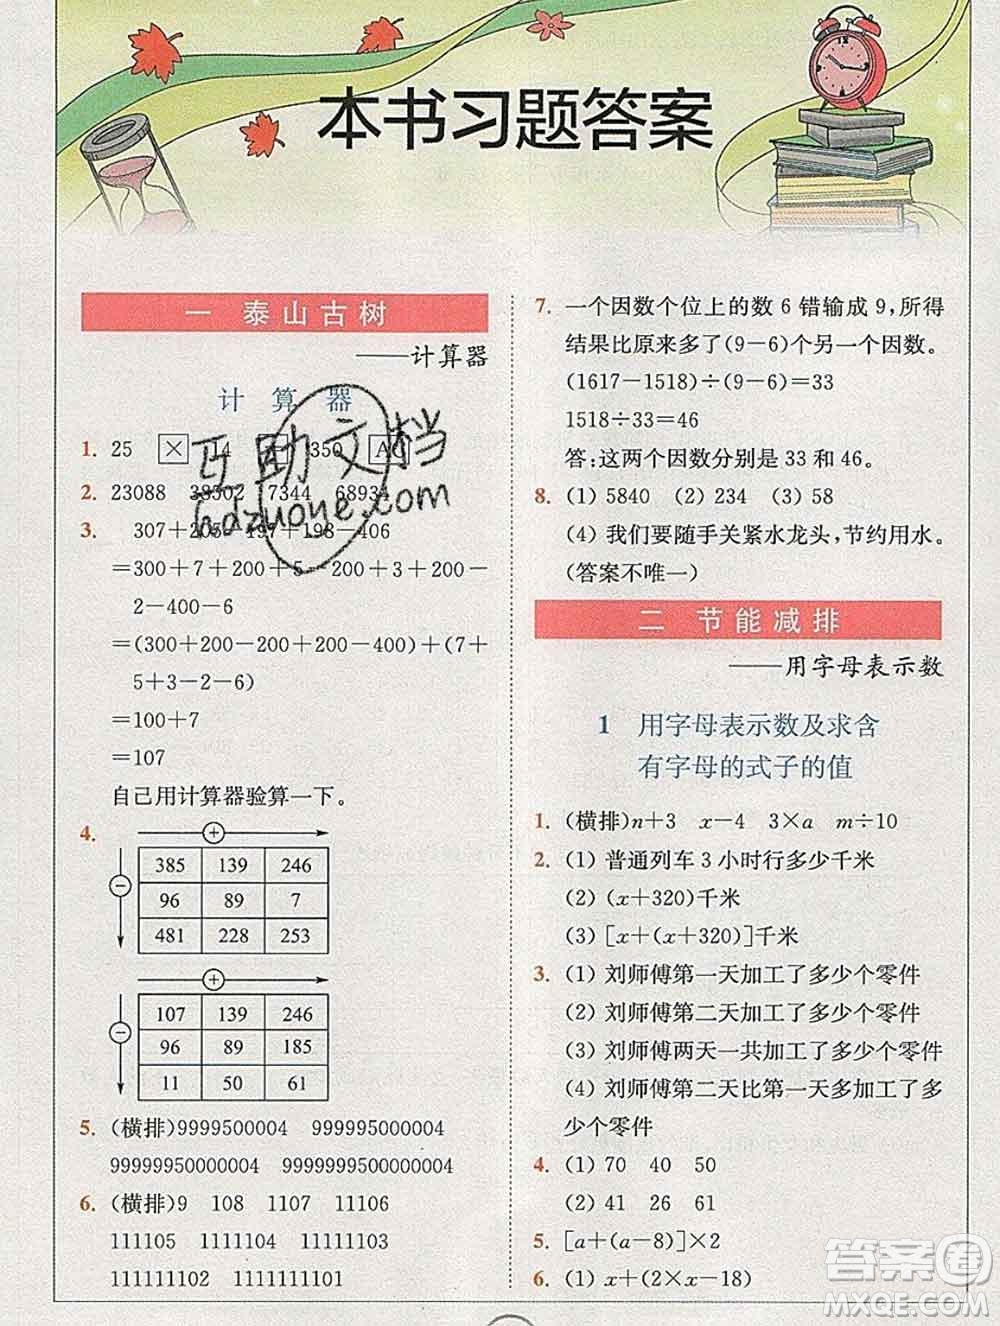 本书习题答案
一 泰山古树
——计算器
计算器
1. 25 × 14 350
2. 23088 38302 7344 68934
3. 307+205-197+198-406
=300+7+200+5-200+3+200-
2-400-6
=(300+200-200+200-400)+(7+
5+3-2-6)
=100+7
=107
自己用计算器验算一下。
4.
+
−
385 139 246
96 89 7
481 228 253
+
−
107 139 246
96 89 185
11 50 61
5. (横排)9999500004 999995000004
99999950000004 9999999500000004
6. (横排)9 108 1107 11106
111105 1111104 11111103
111111102 1111111101
7. 一个因数个位上的数 6 错输成 9,所得
结果比原来多了(9-6)个另一个因数。
(1617-1518)÷(9-6)=33
1518÷33=46
答:这两个因数分别是 33 和 46。
8. (1) 5840 (2) 234 (3) 58
(4) 我们要随手关紧水龙头,节约用水。
(答案不唯一)
二 节能减排
——用字母表示数
1 用字母表示数及求含
有字母的式子的值
1. (横排)n+3 x-4 3×a m÷10
2. (1) 普通列车 3 小时行多少千米
(2) (x+320)千米
(3) [x+(x+320)]千米
3. (1) 刘师傅第一天加工了多少个零件
(2) 刘师傅第二天加工了多少个零件
(3) 刘师傅两天一共加工了多少个零件
(4) 刘师傅第二天比第一天多加工了多
少个零件
4. (1) 70 40 50
(2) 41 26 61
5. [a+(a-8)]×2
6. (1) x+(2×x-18)
互助文档
hdzuoye.com
答案圈
MXQE.COM